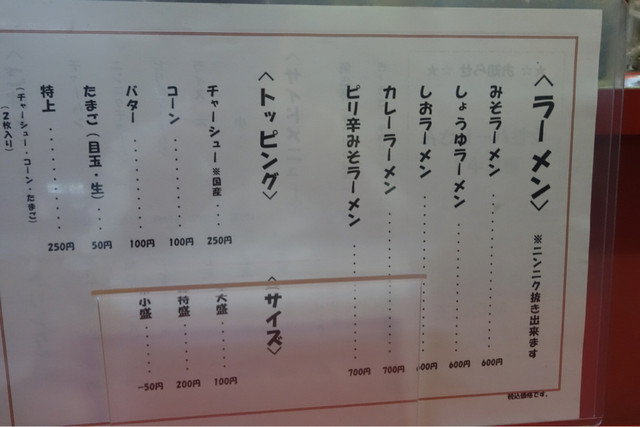 〈ラーメン〉 ※ニンニク抜き出来ます
みそラーメン・・・・・・・・・・・・600円
しょうゆラーメン・・・・・・・・・・600円
しおラーメン・・・・・・・・・・・・600円
カレーラーメン・・・・・・・・・・・700円
ピリ辛みそラーメン・・・・・・・・・700円
〈トッピング〉
チャーシュー※国産・・・250円
コーン・・・・・・・・100円
バター・・・・・・・・100円
たまご(目玉・生)・・・50円
特上・・・・・・・・・250円
(チャーシュー・コーン・たまご)
(2枚入り)
〈サイズ〉
大盛・・・・・100円
特盛・・・・・200円
小盛・・・・・-50円
税込価格です。